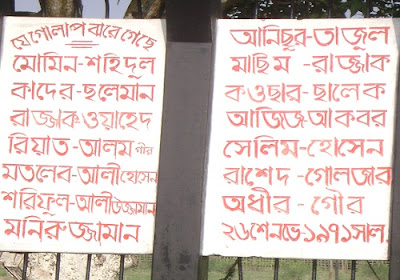 যে গোলাপ ঝরে গেছে
মোমিন-শহিদুল
কাদের-ছলেমান
রাজ্জাক ওয়াহেদ
রিয়াত-আলম গীর
মতলেব-আলী হোসেন
শরিফুল-আলী উজ্জামান
মনিরুজ্জামান
আনিছুর-তাজুল
মাছিম -রাজ্জাক
কওছার-ছালেক
আজিজ আকবর
সেলিম-হোসেন
রাশেদ-গোলজার
অধীর-গৌর
২৬শে নভে ১৯৭১ সাল.